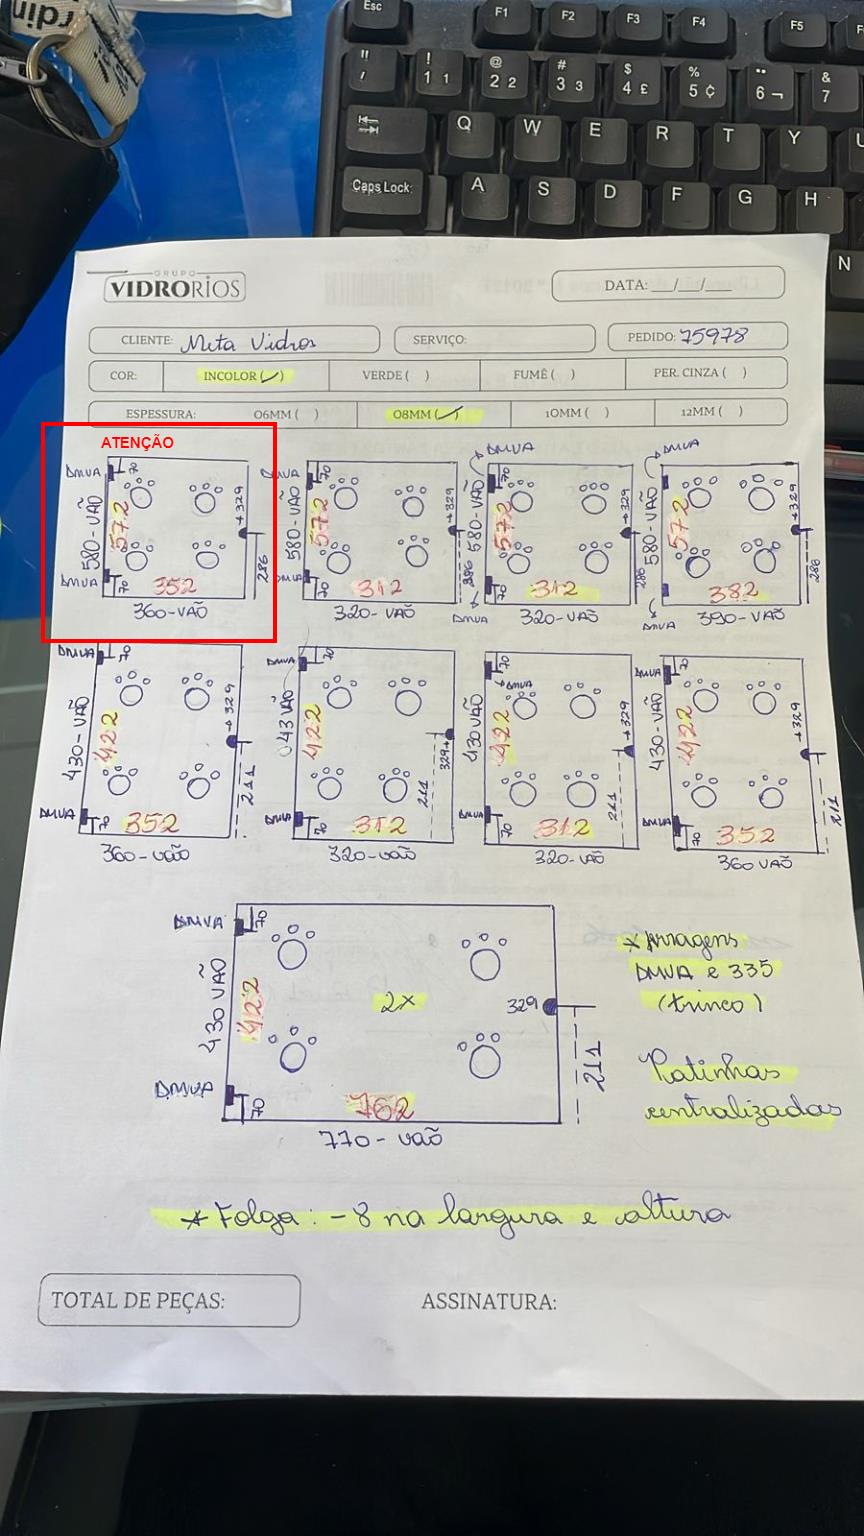 rdin
Esc F1 F2 F3 F4 F5
" / ! 1 1 @ 2 2 # 3 3 $ 4 £ % 5 ¢ ¨ 6 ¬ & 7
Q W E R T Y
Caps Lock A S D F G H
N
GRUPO
VIDRORIOS
DATA: __/__/__
CLIENTE: Meta Vidros SERVIÇO: PEDIDO: 75978
COR: INCOLOR (✓) VERDE ( ) FUMÊ ( ) PER. CINZA ( )
ESPESSURA: 06MM ( ) 08MM (✓) 10MM ( ) 12MM ( )
ATENÇÃO
DMVA 70 580-VÃO 572 DMVA 70 352 360-VÃO 329 286
DMVA 70 580-VÃO 572 DMVA 70 312 320-VÃO 329 286
DMVA 70 580-VÃO 572 DMVA 70 312 320-VÃO 329 286
DMVA 580-VÃO 572 DMVA 382 390-VÃO 329 286
DMVA 70 430-VÃO 422 DMVA 70 352 360-VÃO 329 211
DMVA 70 43 VÃO 422 DMVA 70 312 320-VÃO 329 211
70 DMVA 430 VÃO 422 DMVA 70 312 320-VÃO 329 211
DMVA 70 430-VÃO 422 DMVA 70 352 360 VÃO 329 211
DMVA 70 430 VÃO 422 2x DMVA 70 762 770-VÃO 329 211
DMVA e 335
(trinco)
Patinhas
centralizadas
* Folga: -8 na largura e altura
TOTAL DE PEÇAS: ASSINATURA: